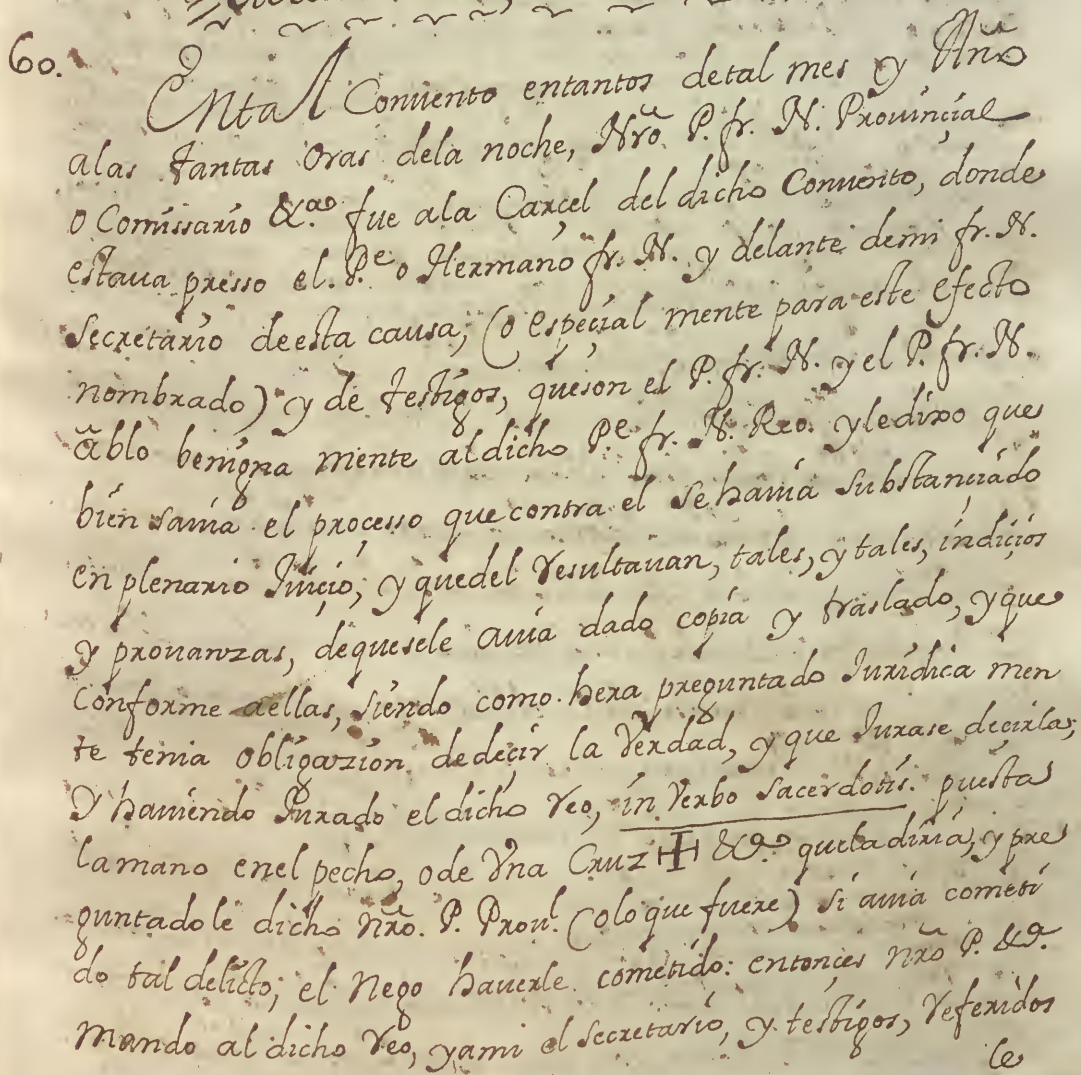 60.
En tal Conuento entantos detal mes y Año
alas tantas oras dela noche, Nrõ. P. fr. N. Prouinçial
o Comissario &.ª fue ala Carçel del dicho Conuento, donde
estaua presso el. P.e o Hermano fr. N. y delante demi fr. N.
secretario deesta causa, (o espeçial mente para este efecto
nombrado) y de testigos, queson el P. fr. N. y el P. fr. N.
ablo benigna mente aldicho P.e fr. N. Reo. y ledixo que
bien sauia el processo que contra el se hauia substançiado
en plenario Iuiçio, y quedel resultauan, tales, y tales, indiçios
y prouanzas, dequesele auia dado copia y traslado, y que
conforme aellas, siendo como hera preguntado Iuridica men
te tenia obligazion dedeçir la Verdad, y que Iurase decirla,
Y hauiendo Iurado el dicho reo, in Verbo Sacerdotis. puesta
lamano enel pecho, o de Vna Cruz ✠ &.ª quela diria, y pre
guntadole dicho Nrõ. P. Prou.l (olo que fuere) si auia cometi
do tal delicto; el Nego hauerle cometido: entonces Nrõ P. &.ª
Mando al dicho reo, y ami el secretario, y testigos, referidos
le